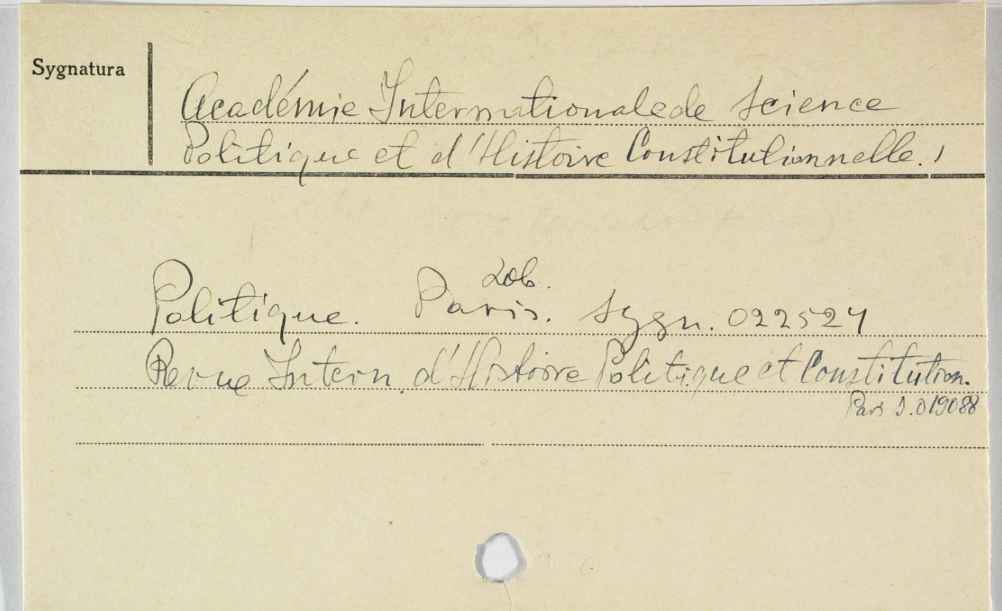 Sygnatura
Académie Internationale de Science
Politique et d'Histoire Constitutionnelle.
zob.
Politique. Paris. Sygn. 022527
Revue Intern. d'Histoire Politique et Constitution.
Paris S. 019088